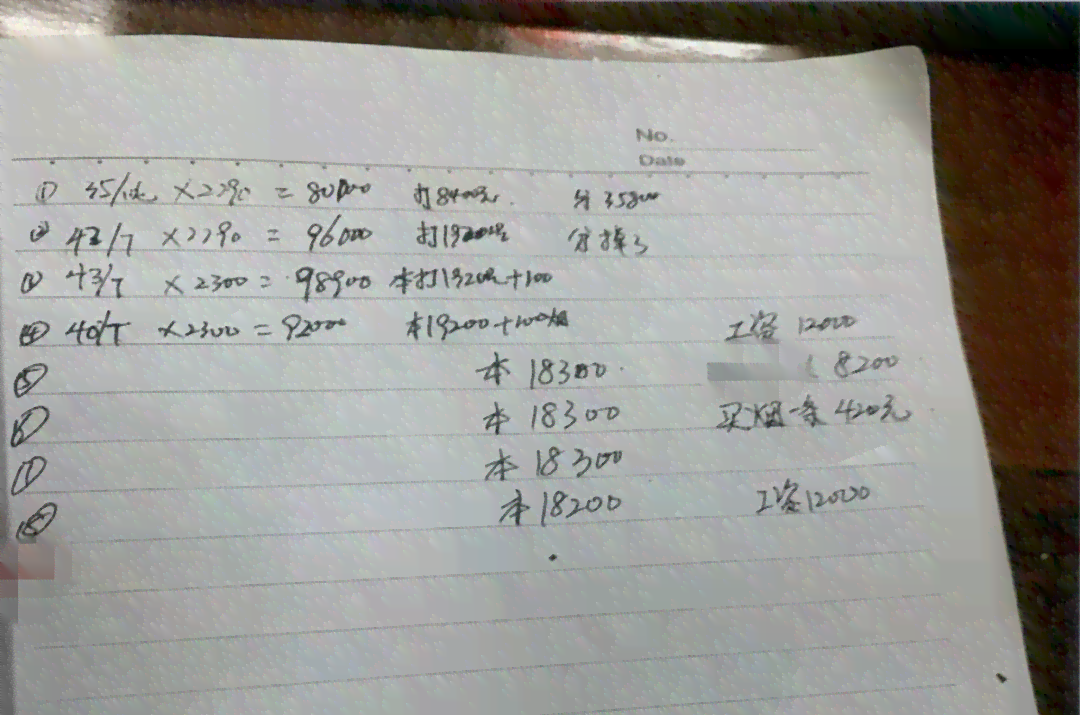 No.
Date
① 35/ × 2290 = 80000 打8400元. 分 35800
② 42/T × 2290 = 96000 打 分掉了
43/T × 2300 = 98900 本打19200+100
④ 40/T × 2300 = 92000 本19200+100 工资 12000
⑤ 本 18300 8200
本 18300 买烟一条 420元
本 18300
本 18200 工资 12000